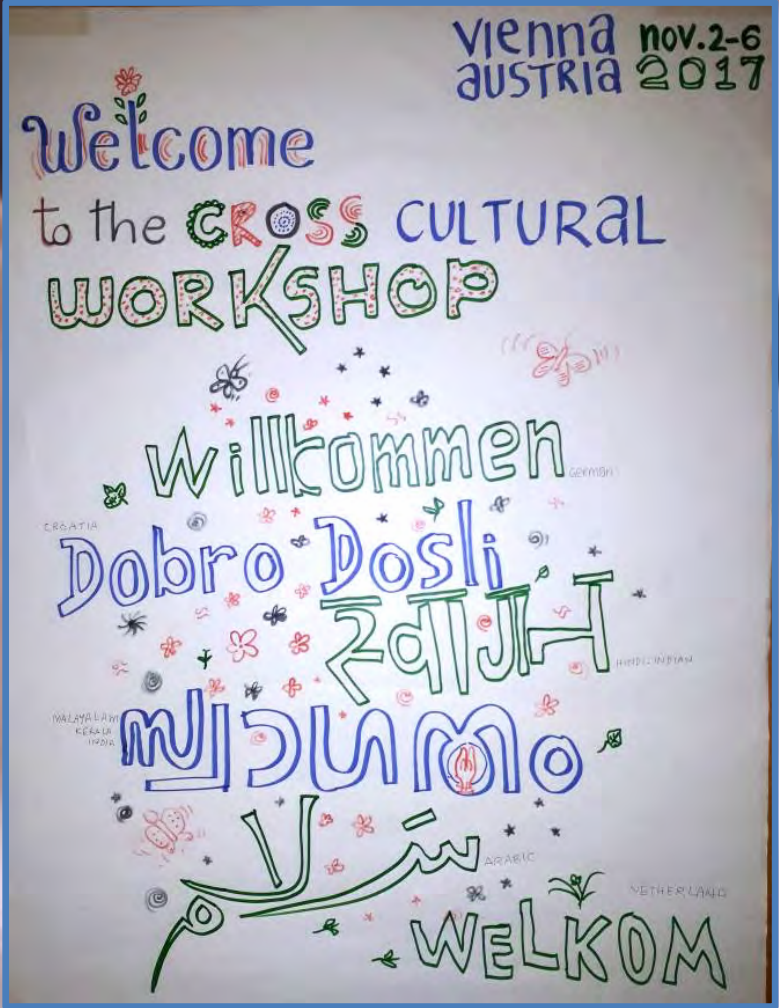 Vienna nov. 2-6
AUSTRIA 2017
Welcome
to the CROSS CULTURAL
WORKSHOP
Willkommen
GERMAN
CROATIA
Dobro Dosli
स्वागत
HINDI: INDIAN
MALAYALAM
KERALA
INDIA
സ്വാഗതം
سَلام
ARABIC
NETHERLAND
WELKOM